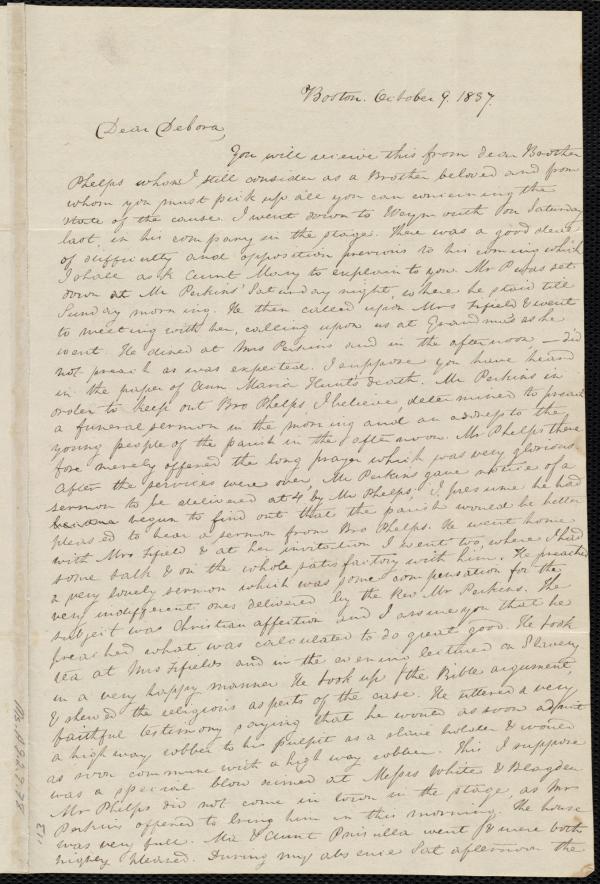 Boston. October 9. 1837.
Dear Debora,
You will receive this from dear Brother
Phelps whom I still consider as a Brother beloved and from
whom you must pick up all you can concerning the
state of the cause. I went down to Weymouth on Saturday
last, in his company in the stage. There was a good deal
of difficulty and opposition previous to his coming which
I shall ask Aunt Mary to explain to you. Mr P was set
down at Mr Perkins' Saturday night, where he staid till
Sunday morning. He then called upon Mrs Fifield & went
to meeting with her, calling upon us at Grandma's as he
went. He dined at Mrs Perkins and in the afternoon — did
not preach as was expected. I suppose you have heard
in the paper of Ann Maria Hunt's death. Mr Perkins in
order to keep out Bro Phelps I believe, determined to preach
a funeral sermon in the morning and an address to the
young people of the parish in the afternoon. Mr Phelps there
fore merely offered the long prayer which was very glorious.
After the services were over, Mr Perkins gave notice of a
sermon to be delivered at 4 by Mr Phelps. I presume he had
begun to find out that the parish would be better
pleased to hear a sermon from Bro Phelps. He went home
with Mrs Fifield & at her invitation I went too, where I had
some talk & on the whole satisfactory with him. He preached
a very lovely sermon which was some compensation for the
very indifferent ones delivered by the Rev. Mr Perkins. The
subject was Christian affection and I assure you that he
preached what was calculated to do great good. He took
tea at Mrs Fifields and in the evening lectured on Slavery
in a very happy manner. He took up the Bible argument,
& shewed the religious aspects of the case. He uttered a very
faithful testimony saying that he would as soon admit
a high way robber to his pulpit as a slave holder & would
as soon commune with a high way robber. This I suppose
was a special blow aimed at Messrs White & Blagden.
Mr Phelps did not come in town in the stage, as Mr
Perkins offered to bring him in this morning. The house
was very full. Ma & Aunt Priscilla went & were both
highly pleased. During my absence Sat afternoon the